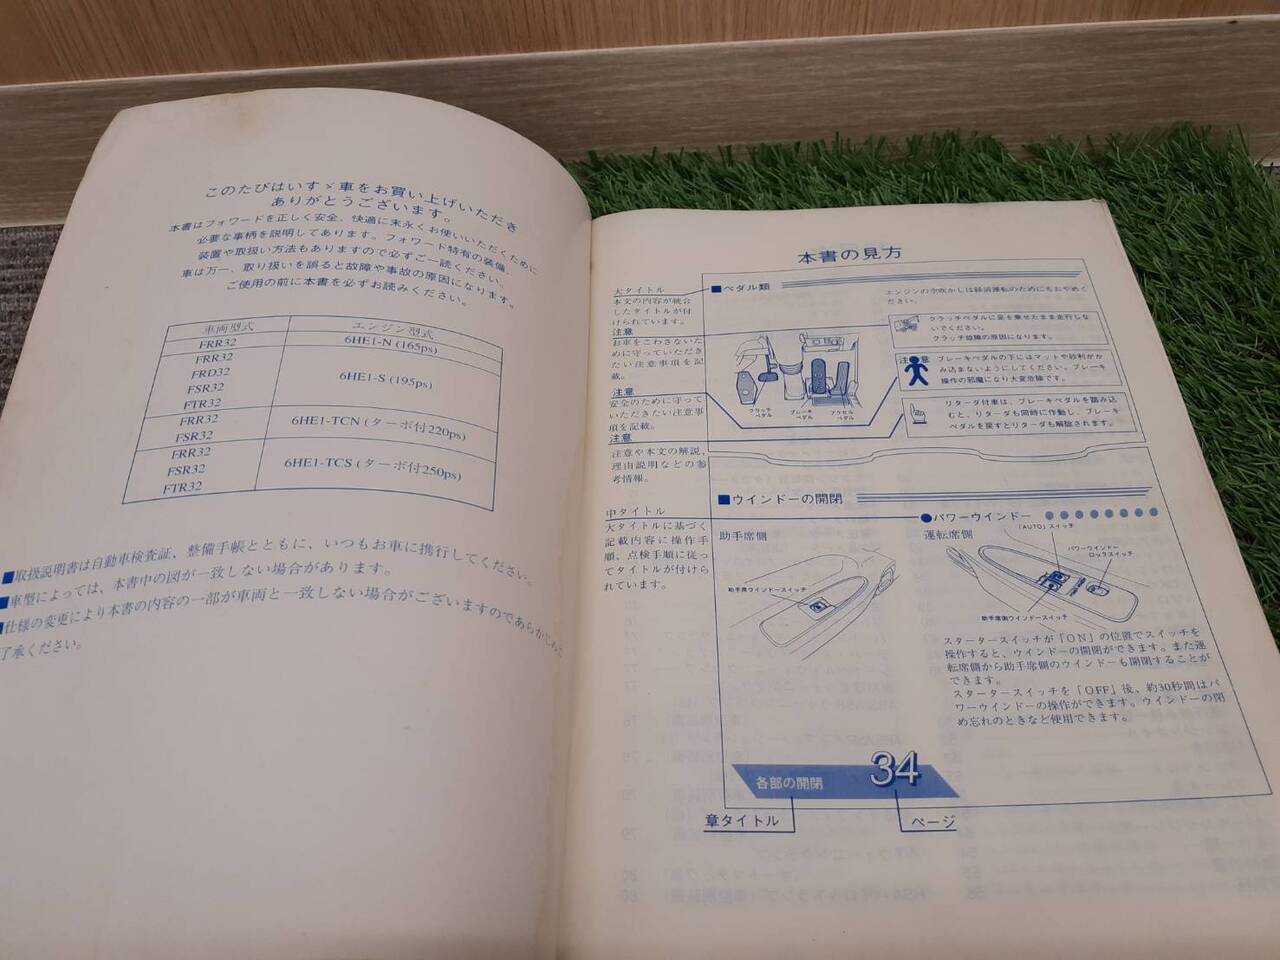 このたびはいすゞ車をお買い上げいただき
ありがとうございます。
本書はフォワードを正しく安全、快適に末永くお使いいただくために
必要な事柄を説明してあります。フォワード特有の装備、
装置や取扱い方法もありますので必ずご一読ください。
車は万一、取り扱いを誤ると故障や事故の原因になります。
ご使用の前に本書を必ずお読みください。
車両型式 エンジン型式
FRR32 6HE1-N (165ps)
FRR32
FRD32
FSR32
FTR32
6HE1-S (195ps)
FRR32
FSR32
6HE1-TCN (ターボ付220ps)
FRR32
FSR32
FTR32
6HE1-TCS (ターボ付250ps)
■取扱説明書は自動車検査証、整備手帳とともに、いつもお車に携行してください。
■車型によっては、本書中の図が一致しない場合があります。
■仕様の変更により本書の内容の一部が車両と一致しない場合がございますのであらかじめご
了承ください。
本書の見方
大タイトル
本文の内容が統合
したタイトルが付
けられています。
注意
お車をこわさないた
めに守っていただき
たい注意事項を記
載。
注意
安全のために守って
いただきたい注意事
項を記載。
注意
注意や本文の解説、
理由説明などの参
考情報。
中タイトル
大タイトルに基づく
記載内容に操作手
順、点検手順に従っ
てタイトルが付けら
れています。
■ペダル類
クラッチ
ペダル
ブレーキ
ペダル
アクセル
ペダル
エンジンの空吹かしは経済運転のためにもおやめく
ださい。
クラッチペダルに足を乗せたまま走行しな
いでください。
クラッチ故障の原因になります。
注意
ブレーキペダルの下にはマットや砂利がか
み込まないようにしてください。ブレーキ
操作の邪魔になり大変危険です。
リターダ付車は、ブレーキペダルを踏み込
むと、リターダも同時に作動し、ブレーキ
ペダルを戻すとリターダも解除されます。
■ウインドーの開閉
助手席側
助手席ウインドースイッチ
●パワーウインドー
運転席側
「AUTO」スイッチ
パワーウインドー
ロックスイッチ
助手席側ウインドースイッチ
スタータースイッチが「ON」の位置でスイッチを
操作すると、ウインドーの開閉ができます。また運
転席側から助手席側のウインドーも開閉することが
できます。
スタータースイッチを「OFF」後、約30秒間はパ
ワーウインドーの操作ができます。ウインドーの閉
め忘れのときなど使用できます。
各部の開閉
34
章タイトル
ページ